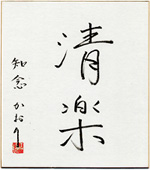 清楽
知念 かおり